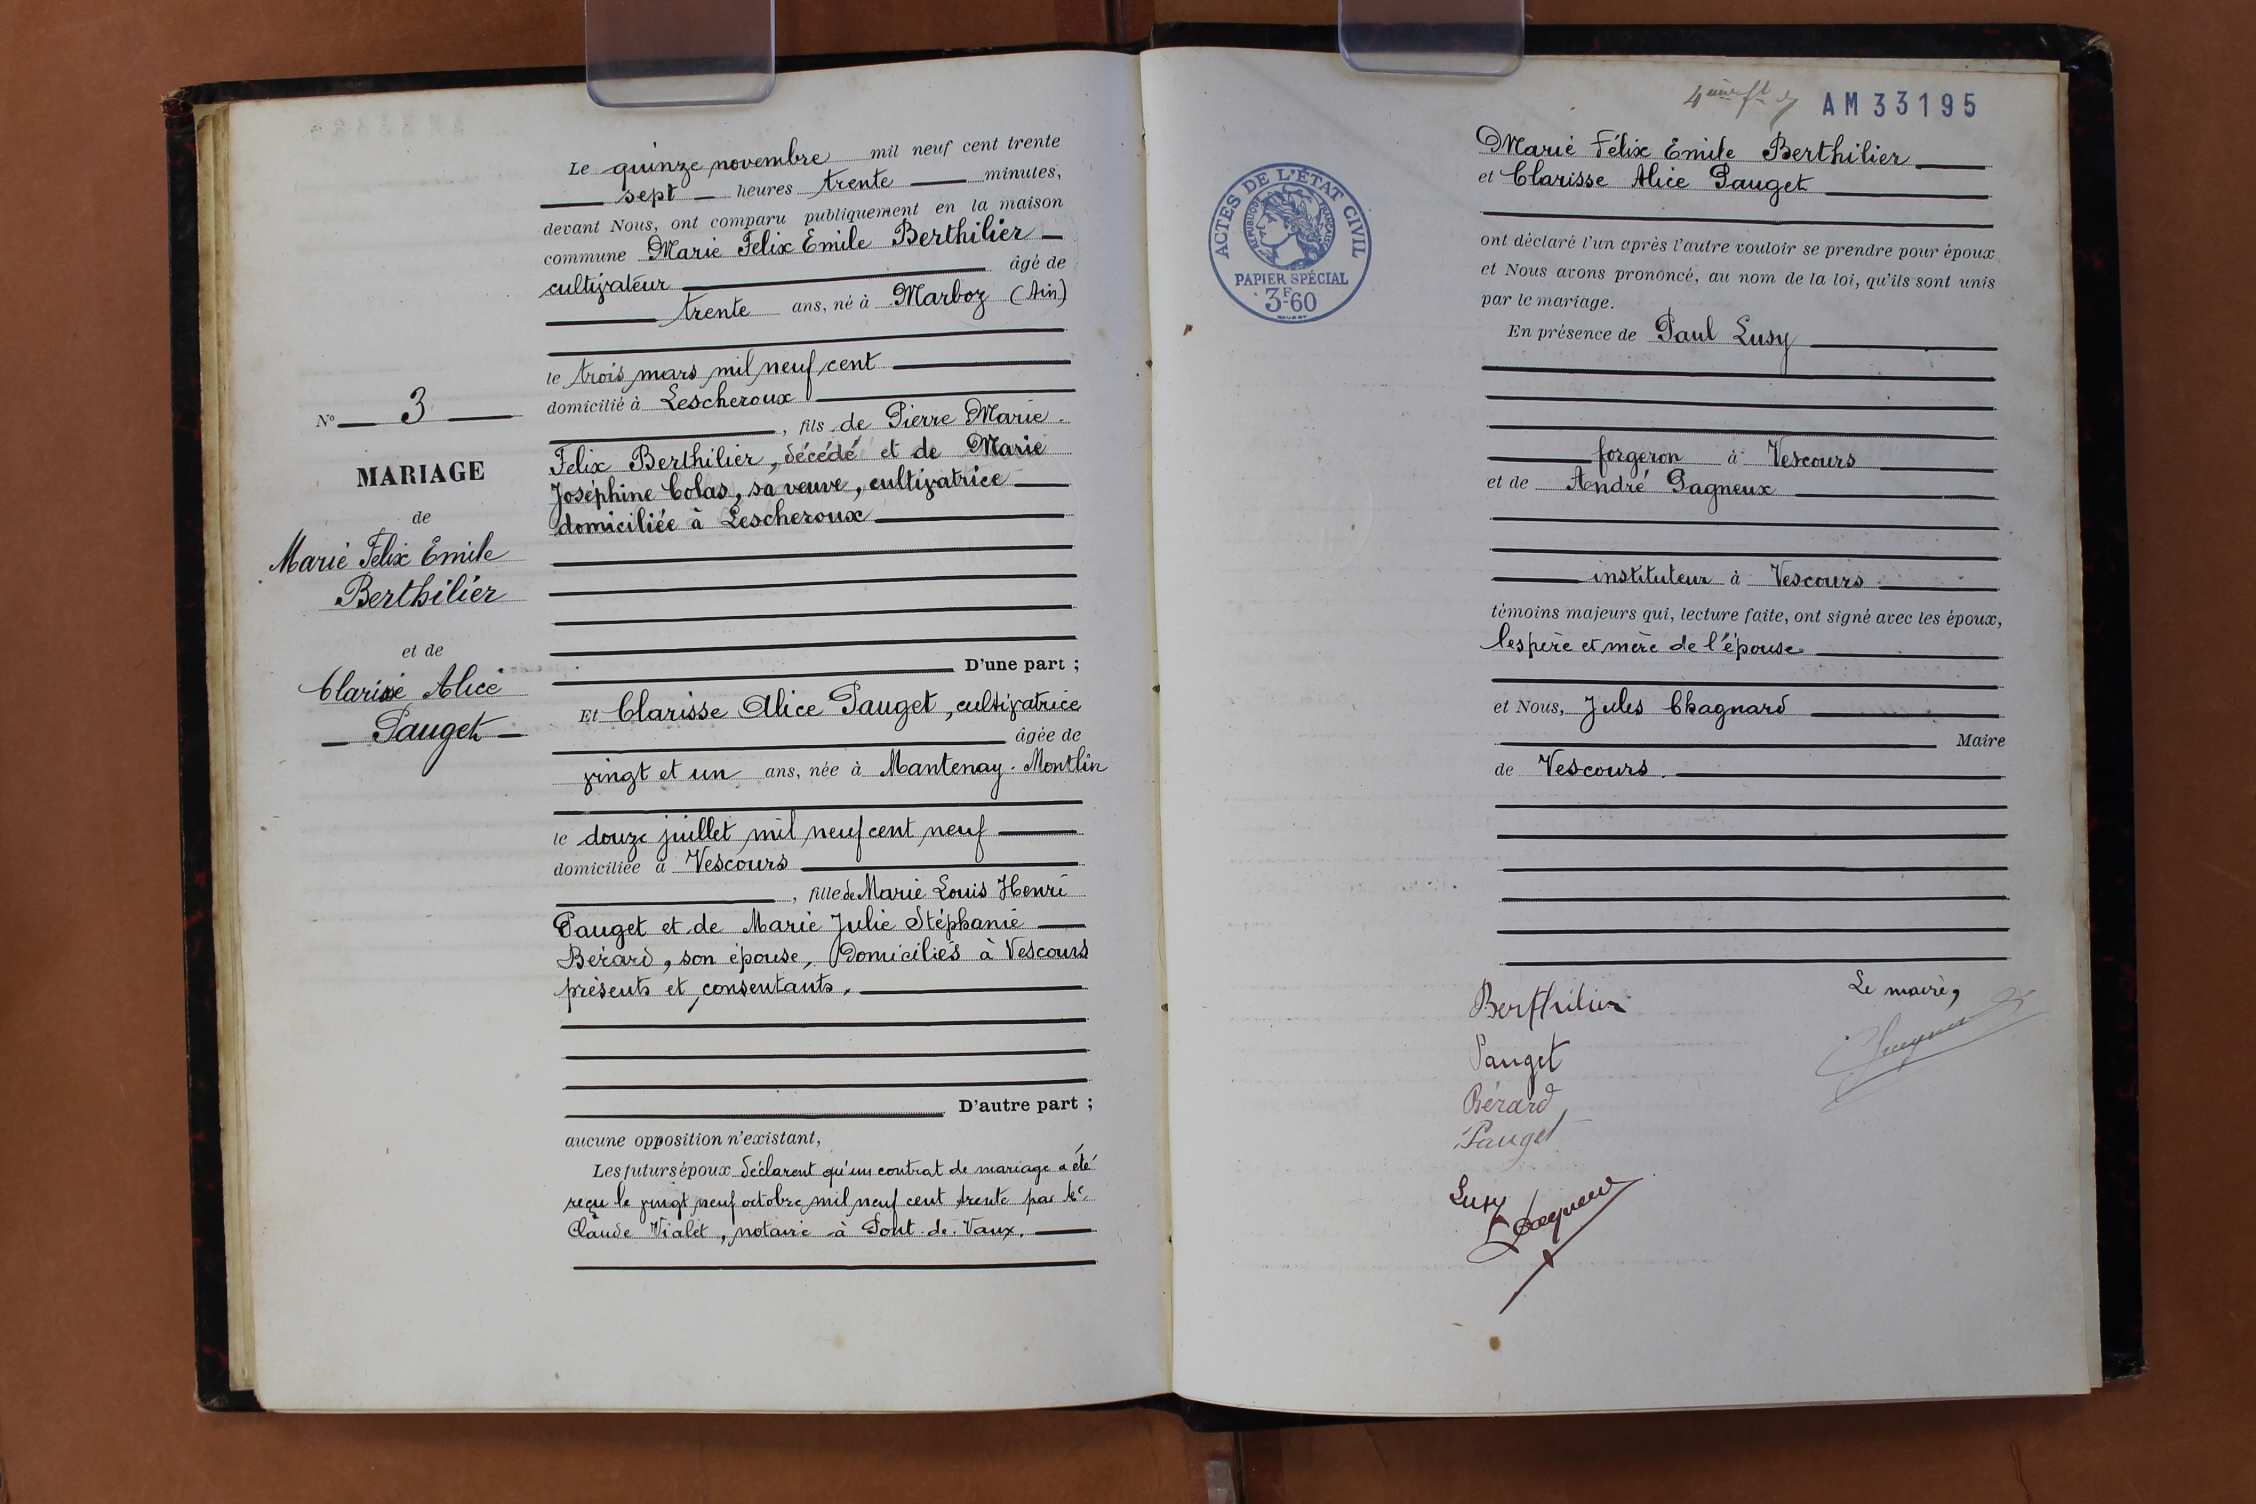 Le quinze novembre mil neuf cent trente
sept heures trente minutes,
devant Nous, ont comparu publiquement en la maison
commune Marie Felix Emile Berthilier
cultivateur âgé de
trente ans, né à Marboz (Ain)
le trois mars mil neuf cent
domicilié à Lescheroux
, fils de Pierre Marie
Felix Berthilier, décédé et de Marie
Joséphine Colas, sa veuve, cultivatrice
domiciliée à Lescheroux
D'une part ;
Et Clarisse Alice Pauget, cultivatrice
âgée de
vingt et un ans, née à Mantenay-Montlin
le douze juillet mil neuf cent neuf
domiciliée à Vescours
, fille de Marie Louis Henri
Pauget et de Marie Julie Stéphanie
Bérard, son épouse, domiciliés à Vescours
présents et consentants.
D'autre part ;
aucune opposition n'existant,
Les futurs époux déclarent qu'un contrat de mariage a été
reçu le vingt neuf octobre mil neuf cent trente par Me
Claude Vialet, notaire à Pont-de-Vaux.
No 3
MARIAGE
de
Marie Felix Emile
Berthilier
et de
Clarisse Alice
Pauget
AM33195
ACTES DE L'ÉTAT CIVIL
RÉPUBLIQUE FRANÇAISE
PAPIER SPÉCIAL
3F60
Marie Félix Emile Berthilier
et Clarisse Alice Pauget
ont déclaré l'un après l'autre vouloir se prendre pour époux
et Nous avons prononcé, au nom de la loi, qu'ils sont unis
par le mariage.
En présence de Paul Lusy
forgeron à Vescours
et de André Pagneux
instituteur à Vescours
témoins majeurs qui, lecture faite, ont signé avec les époux,
les père et mère de l'épouse
et Nous, Jules Chagnard
Maire
de Vescours.
Le maire,
Berthilier
Pauget
Bérard
Pauget
Lusy
Pagneux